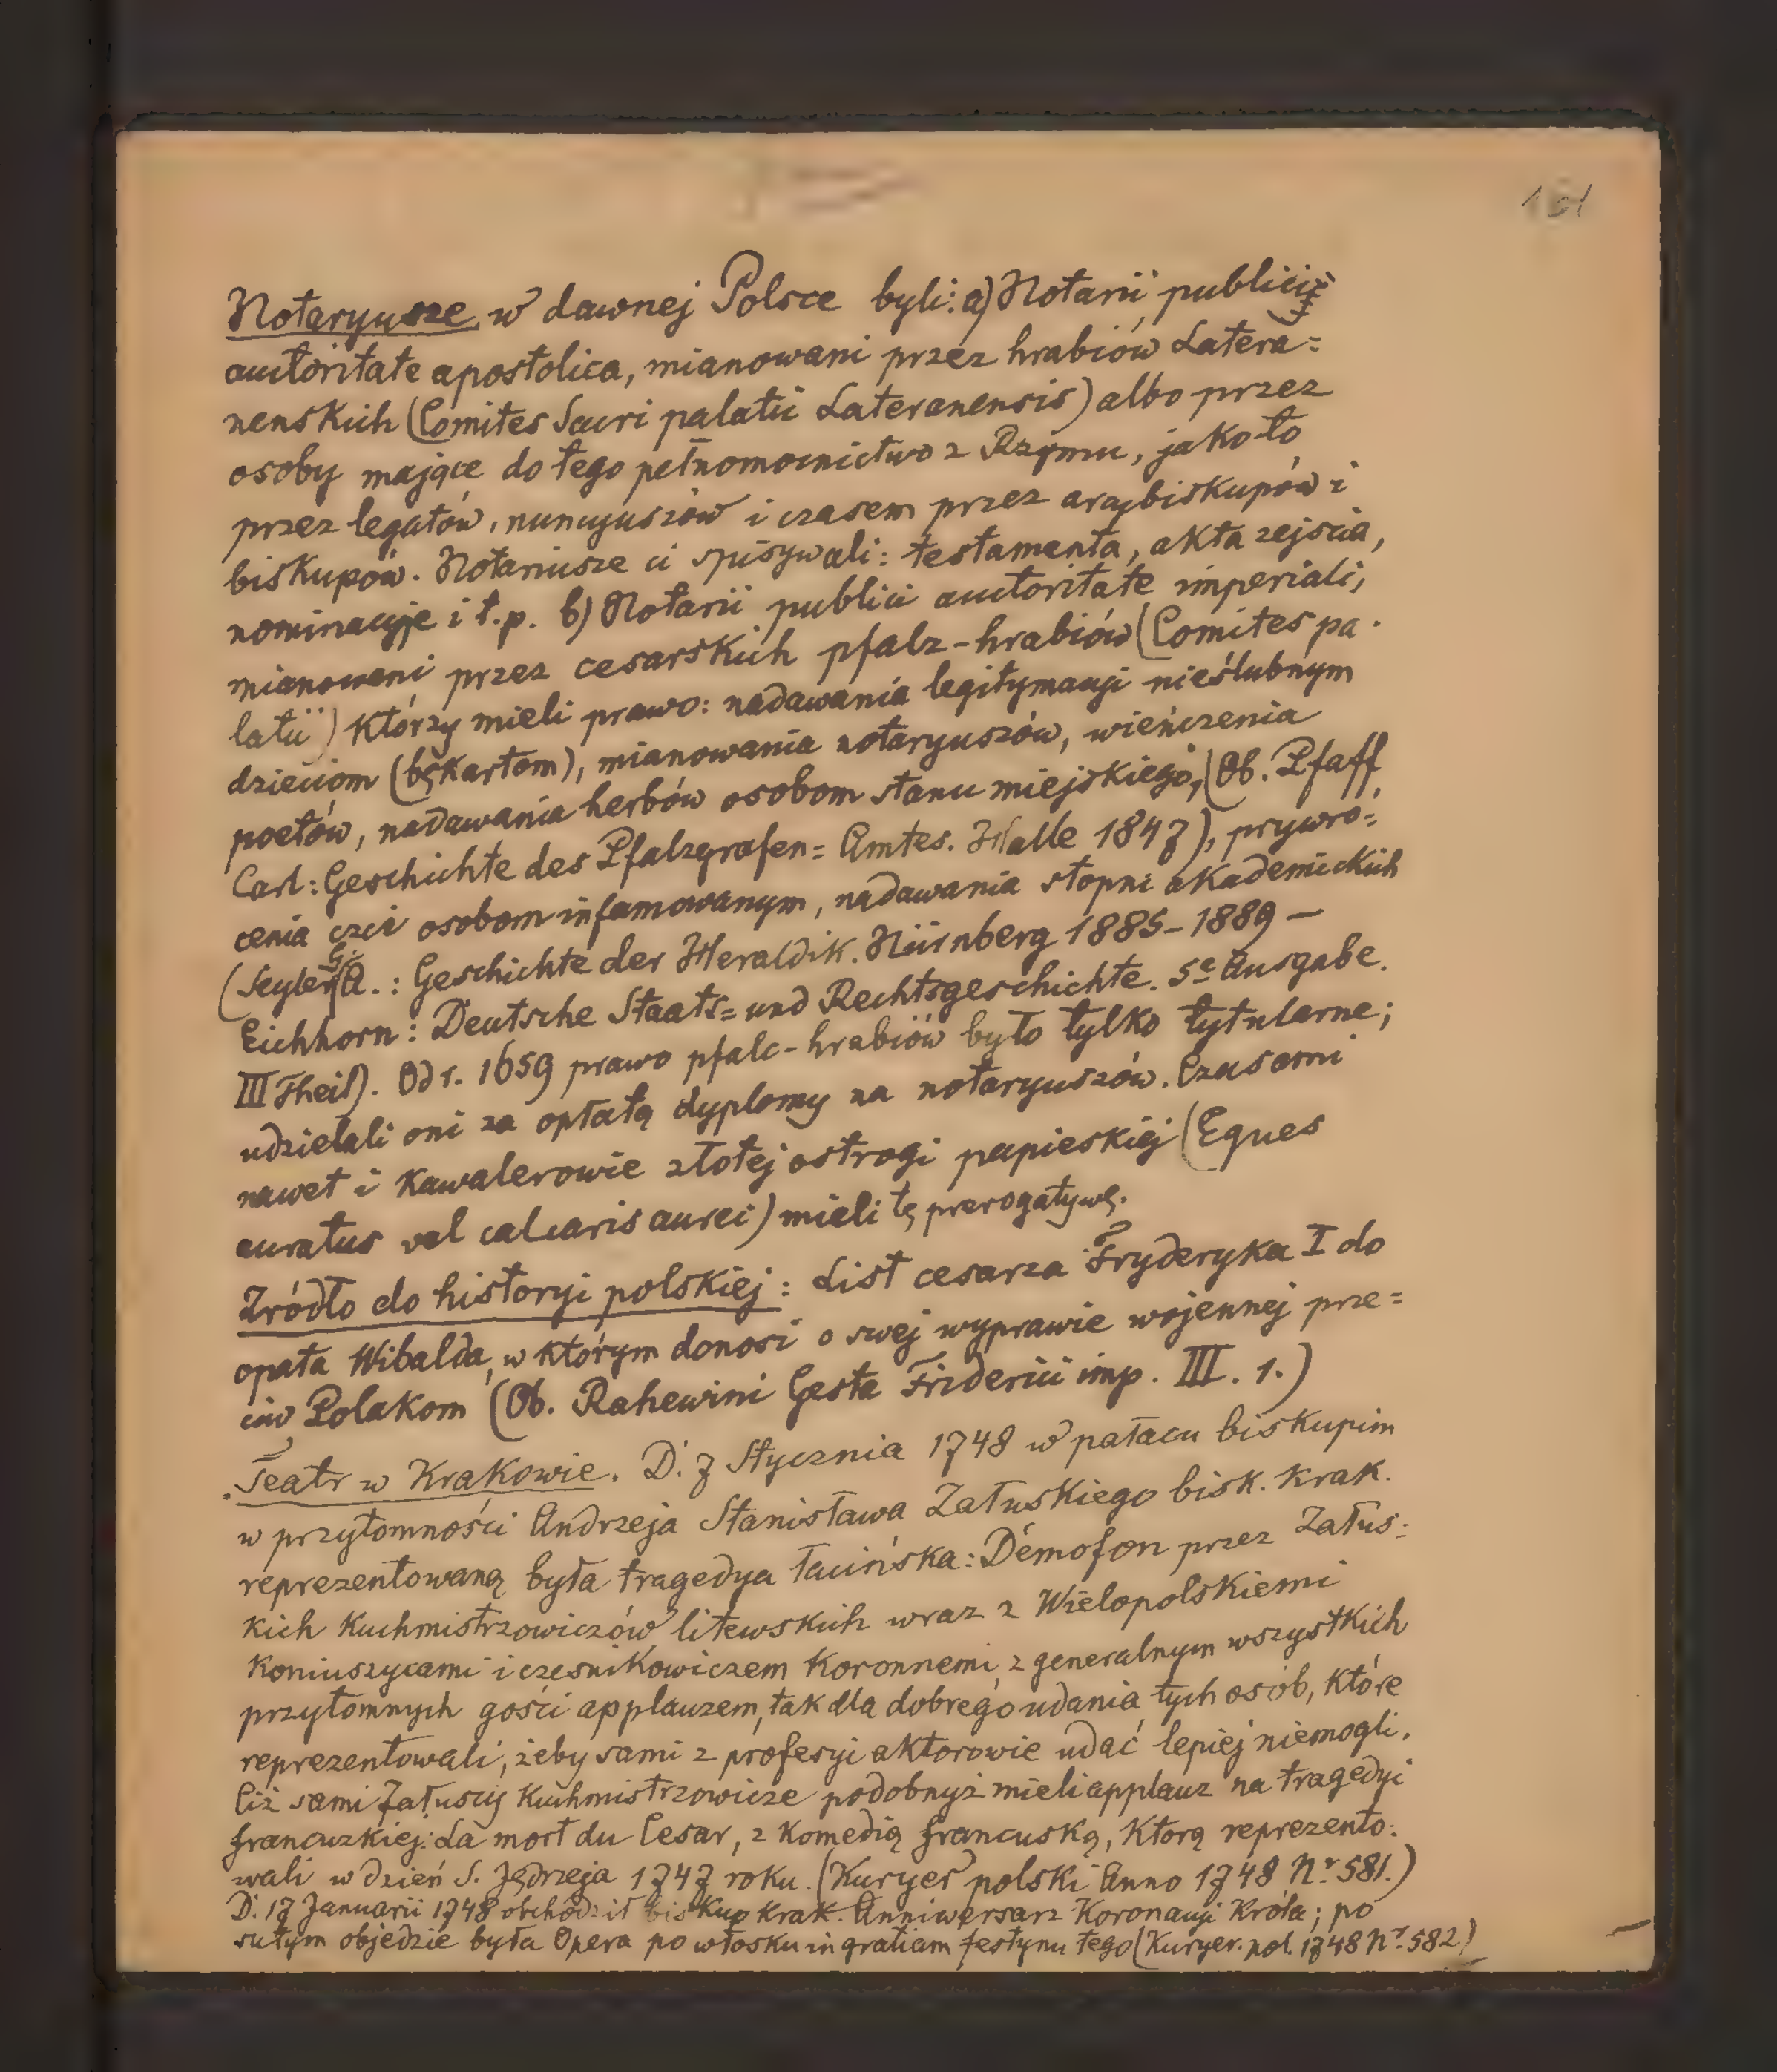 101
Notaryusze w dawnej Polsce byli: a) Notarii publici
auctoritate apostolica, mianowani przez hrabiów Latera=
nenskich (Comites Sacri palatii Lateranensis) albo przez
osoby mające do tego pełnomocnictwo z Rzymu, jako to
przez legatów, nuncyuszów i czasem przez arcybiskupów i
biskupów. Notariusze ci spisywali: testamenta, akta zejścia,
nominacyje i t.p. b) Notarii publici auctoritate imperiali,
mianowani przez cesarskich pfalz-hrabiów (Comites pa-
latii) którzy mieli prawo: nadawania legitymacji nieślubnym
dzieciom (bękartom), mianowania notaryuszów, wieńczenia
poetów, nadawania herbów osobom stanu miejskiego, (Ob. Pfaff
Carl: Geschichte des Pfalzgrafen= Amtes. Halle 1847), prywró=
cenia czci osobom infamowanym, nadawania stopni akademickich
(Seyler G. A.: Geschichte der Heraldik. Nürnberg 1885-1889 —
Eichhorn: Deutsche Staats= und Rechtsgeschichte. 5e Ausgabe.
III Theil). Od r. 1659 prawo pfalc-hrabiów było tylko tytularne;
udzielali oni za opłatą dyplomy na notaryuszów. Czasami
nawet i Kawalerowie złotej ostrogi papieskiej (Eques
auratus vel calcaris aurei) mieli tę prerogatywę.
Zródło do historyi polskiej: List cesarza Fryderyka I do
opata Wibalda, w którym donosi o swej wyprawie wojennej prze=
ciw Polakom (Ob. Rahewini Gesta Friderici imp. III. 1.)
Teatr w Krakowie. D. 7 Stycznia 1748 w pałacu biskupim
w przytomności Andrzeja Stanisława Załuskiego bisk. krak.
reprezentowaną była tragedya łacińska: Démofon przez Załus=
kich Kuchmistrzowiczów litewskich wraz z Wielopolskiemi
Koniuszycami i cześnikowiczem Koronnemi, z generalnym wszystkich
przytomnych gości applauzem, tak dla dobrego udania tych osób, które
reprezentowali, żeby sami z profesyi aktorowie udać lepiej niemogli.
Ciż sami Załuscy Kuchmistrzowicze podobnyż mieli applauz na tragedyi
francuzkiej: La mort du Cesar, z Komedią francuską, Którą reprezento=
wali w dzień S. Jędrzeja 1747 roku. (Kuryer polski Anno 1748 Nr. 581.)
D. 17 Januarii 1748 obchodził biskup krak. Anniwersarz Koronacyi Króla; po
sutym objedzie była Opera po włosku in gratiam festynu tego (Kuryer. pol. 1748 Nr. 582)